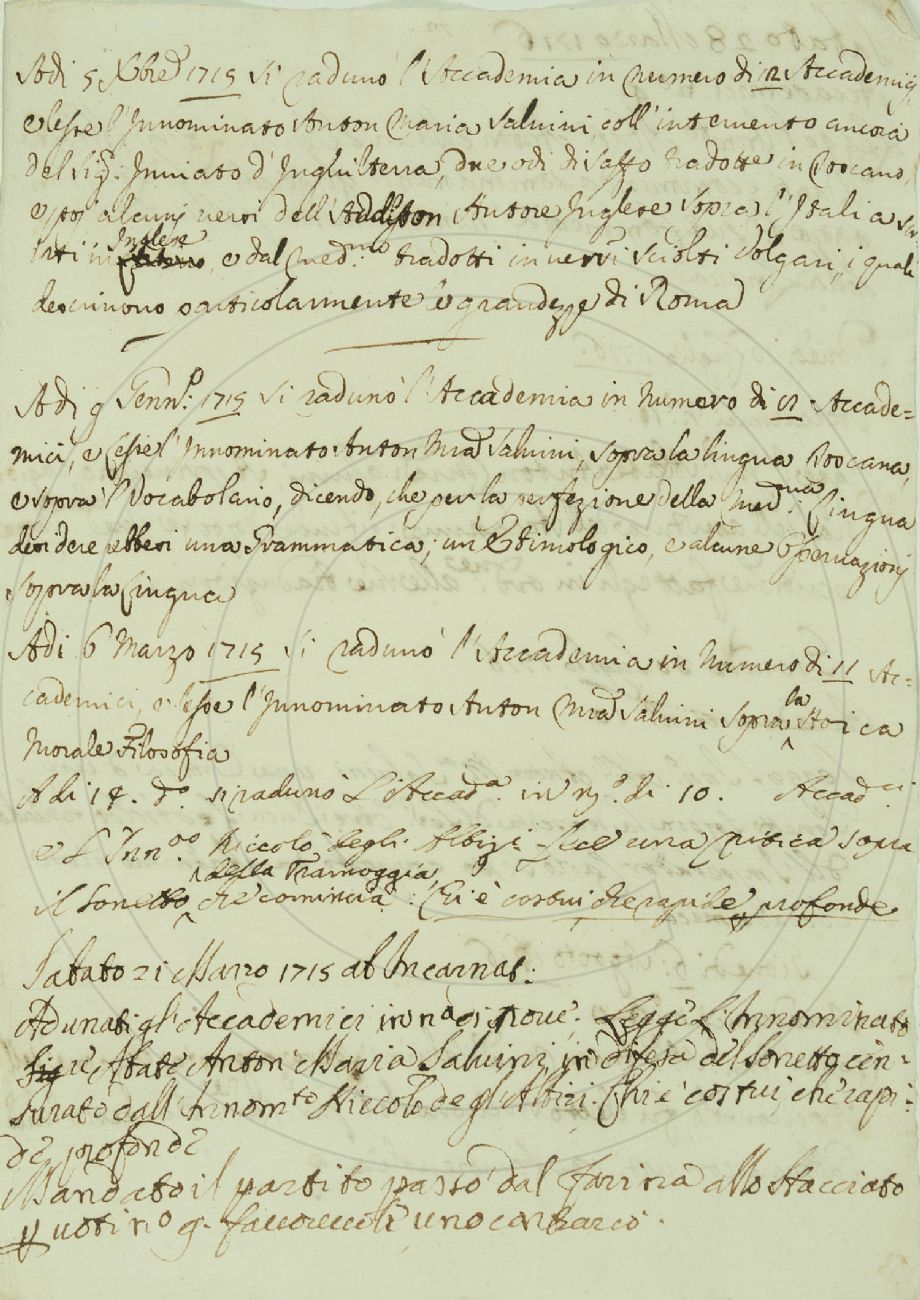 Adi 5 Xbre 1715 si radunò l'Accademia in numero di 12 Accademici,
e lesse l'Innominato Anton Maria Salvini, coll'intervento ancora
del Sig.r Inviato d'Inghilterra, due odi di Saffo tradotte in Toscano,
e poi alcuni versi dell'Addisson Autore Inglese sopra l'Italia scr
itti in Inglese, e dal med.mo tradotti in versi sciolti Volgari, i quali
descrivono particolarmente le grandezze di Roma
Adi 9 Genn.o 1715 si radunò l'Accademia in numero di 12 Accade=
mici, e lesse l'Innominato Anton M.a Salvini, sopra la lingua Toscana,
e sopra 'l Vocabolario, dicendo, che per la perfezione della med.ma Lingua
desidererebbesi una Grammatica, un Etimologico, e alcune Osservazioni
sopra la Lingua
Adi 6 Marzo 1715 si radunò l'Accademia in numero di 11 Ac=
cademici, e lesse l'Innominato Anton M.a Salvini sopra la Stoica
Morale Filosofia
A di 14. d.o si radunò l'Accad.a in n.o di 10. Accad.ci
e l'Inn.o Niccolò degli Albizi fece una critica sopra
il Sonetto della Tramoggia, che comincia: Chi è costui, che rapide, e profonde
Sabato 21 Marzo 1715 ab Incarnat:
Adunati gl'Accademici in n.o di nove. Legge l'Innominato
Sig.re Abate Anton Maria Salvini, in difesa del Sonetto cen-
surato dall'Innom.to Niccolò degl'Albizi. Chi è costui, che rapi:
de, e profonde
Mandato il partito passò dal farina allo Stacciato
p voti n.o 9. favorevoli, uno contrario.